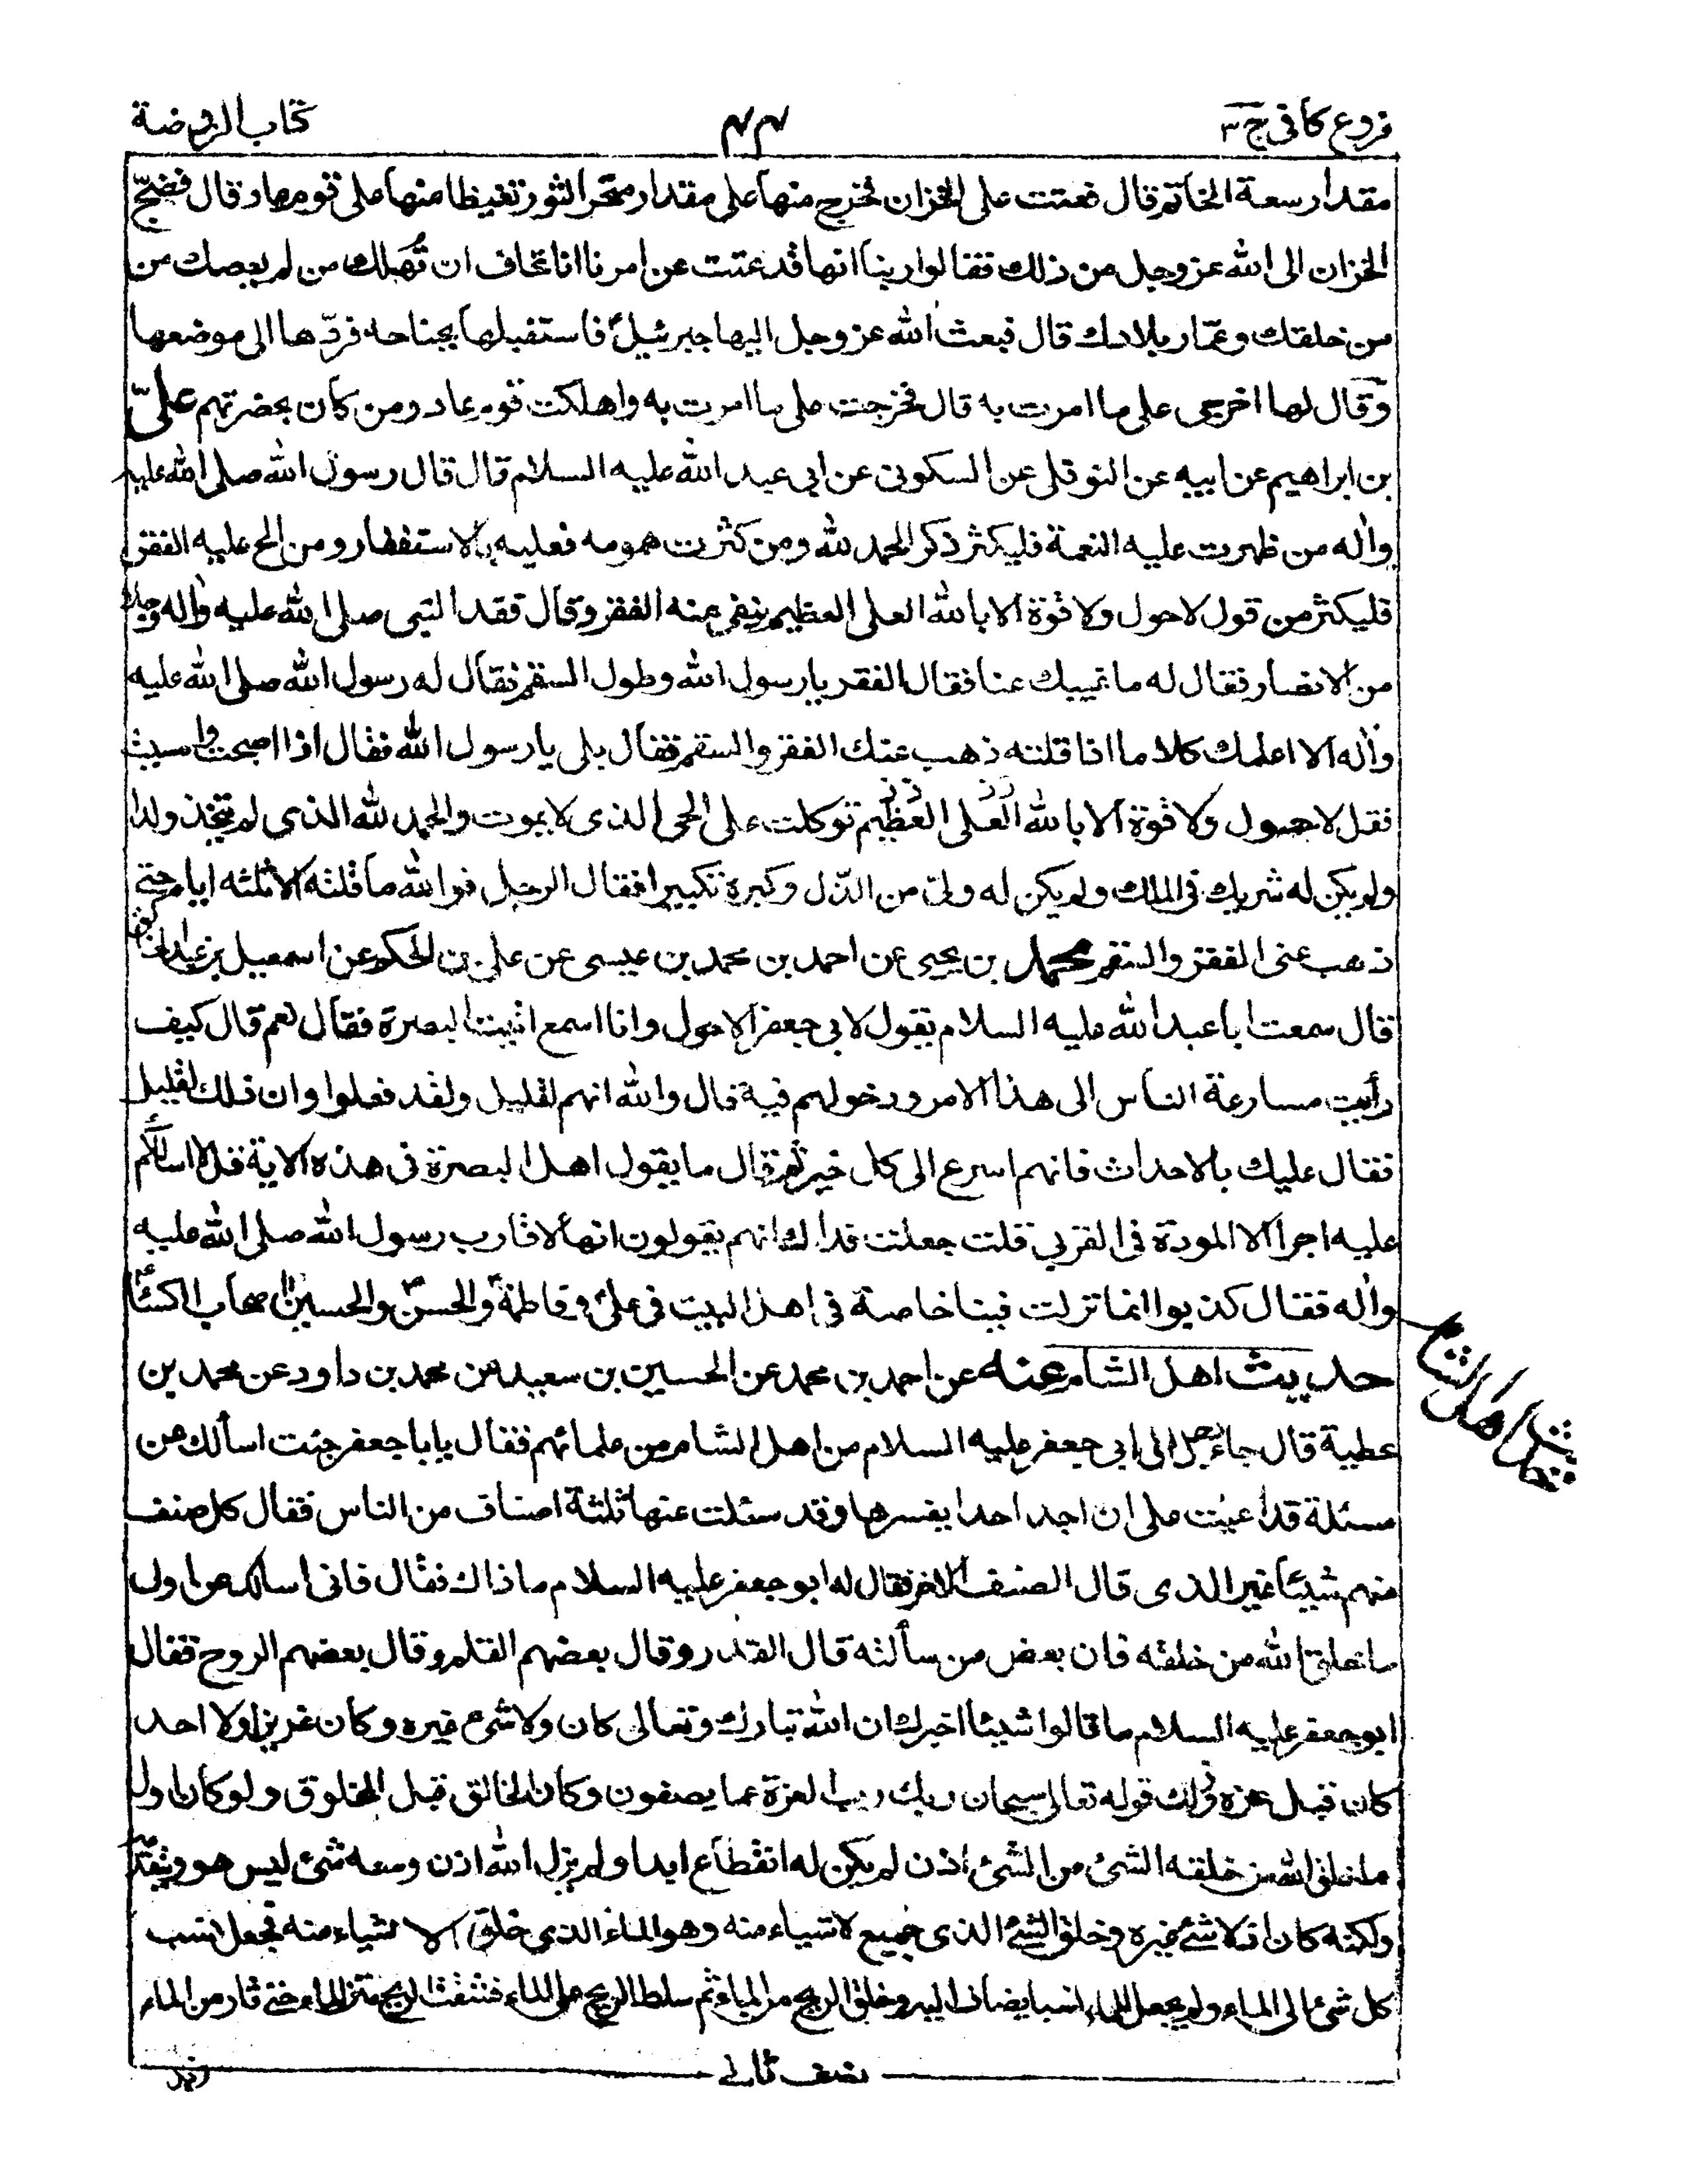 فروع كافى ج ٣
٤٤
كتاب الروضة
مقدار سعة الخاتم قال فعتت على الخزان فخرج منها على مقدار منخر الثور تغيظا منها على قوم عاد قال فضجّ
الخزان الى الله عز وجل من ذلك فقالوا ربنا انها قد عتت عن امرنا انا نخاف ان تُهلك من لم يعصك من
من خلقك وعمّار بلادك قال فبعث الله عز وجل اليها جبرئيل فاستقبلها بجناحه فردّها الى موضعها
وقال لها اخرجى على ما امرت به قال فخرجت على ما امرت به واهلكت قوم عاد ومن كان بحضرتهم علىّ
بن ابراهيم عن ابيه عن النوفلى عن السكونى عن ابى عبد الله عليه السلام قال قال رسول الله صلى الله عليه
واله من ظهرت عليه النعمة فليكثر ذكر الحمد لله ومن كثرت همومه فعليه بالاستغفار ومن الح عليه الفقر
فليكثر من قول لا حول ولا قوة الا بالله العلى العظيم ينفى عنه الفقر وقال فقد النبى صلى الله عليه واله رجلا
من الانصار فقال له ما غيبك عنا فقال الفقر يا رسول الله وطول السقم فقال له رسول الله صلى الله عليه
واله الا اعلمك كلاما اذا قلته ذهب عنك الفقر والسقم فقال بلى يا رسول الله فقال اذا اصبحت وامسيت
فقل لا حول ولا قوة الا بالله العلى العظيم توكلت على الحى الذى لا يموت والحمد لله الذى لم يتخذ ولدا
ولم يكن له شريك فى الملك ولم يكن له ولى من الذّل وكبره تكبيرا فقال الرجل فوالله ما قلته الا ثلثه ايام حتى
ذهب عنى الفقر والسقم محمد بن يحيى عن احمد بن محمد بن عيسى عن على بن الحكم عن اسمعيل بن عبد الخالق
قال سمعت ابا عبد الله عليه السلام يقول لابى جعفر الاحول وانا اسمع اتيت البصرة فقال نعم قال كيف
رأيت مسارعة الناس الى هذا الامر ودخولهم فيه قال والله انهم لقليل ولقد فعلوا وان ذلك لقليل
فقال عليك بالاحداث فانهم اسرع الى كل خير ثم قال ما يقول اهل البصرة فى هذه الاية قل لا اسألكم
عليه اجرا الا المودة فى القربى قلت جعلت فداك انهم يقولون انها لاقارب رسول الله صلى الله عليه
واله فقال كذبوا انما نزلت فينا خاصة فى اهل البيت فى على وفاطمة والحسن والحسين اصحاب الكساء
حديث اهل الشام
حديث اهل الشام عنه عن احمد بن محمد عن الحسين بن سعيد عن محمد بن داود عن محمد بن
عطية قال جاء رجل الى ابى جعفر عليه السلام من اهل الشام من علمائهم فقال يابا جعفر جئت اسألك عن
مسئلة قد اعيت على ان اجد احدا يفسرها وقد سئلت عنها ثلثة اصناف من الناس فقال كل صنف
منهم شيئا غير الذى قال الصنف الاخر فقال له ابو جعفر عليه السلام ما ذاك فقال فانى اسالك عن اول
ما خلق الله من خلقه فان بعض من سألته قال القدر وقال بعضهم القلم وقال بعضهم الروح فقال
ابو جعفر عليه السلام ما قالوا شيئا اخبرك ان الله تبارك وتعالى كان ولا شىء غيره وكان عزيزا ولا احد
كان قبل عزه وذلك قوله تعالى سبحان ربك رب العزة عما يصفون وكان الخالق قبل المخلوق ولو كان اول
ما خلق الله من خلقه الشئ من الشئ اذن لم يكن له انقطاع ابدا ولم يزل الله اذن ومعه شئ ليس هو يتقدمه
ولكنه كان اذ لا شئ غيره وخلق الشئ الذى جميع لاشياء منه وهو الماء الذى خلق الاشياء منه فجعل نسب
كل شئ الى الماء ولم يجعل للماء نسبا يضاف اليه وخلق الريح من الماء ثم سلط الريح على الماء فشققت الريح متن الماء حتى ثار من الماء
نصف ثانى
زبد